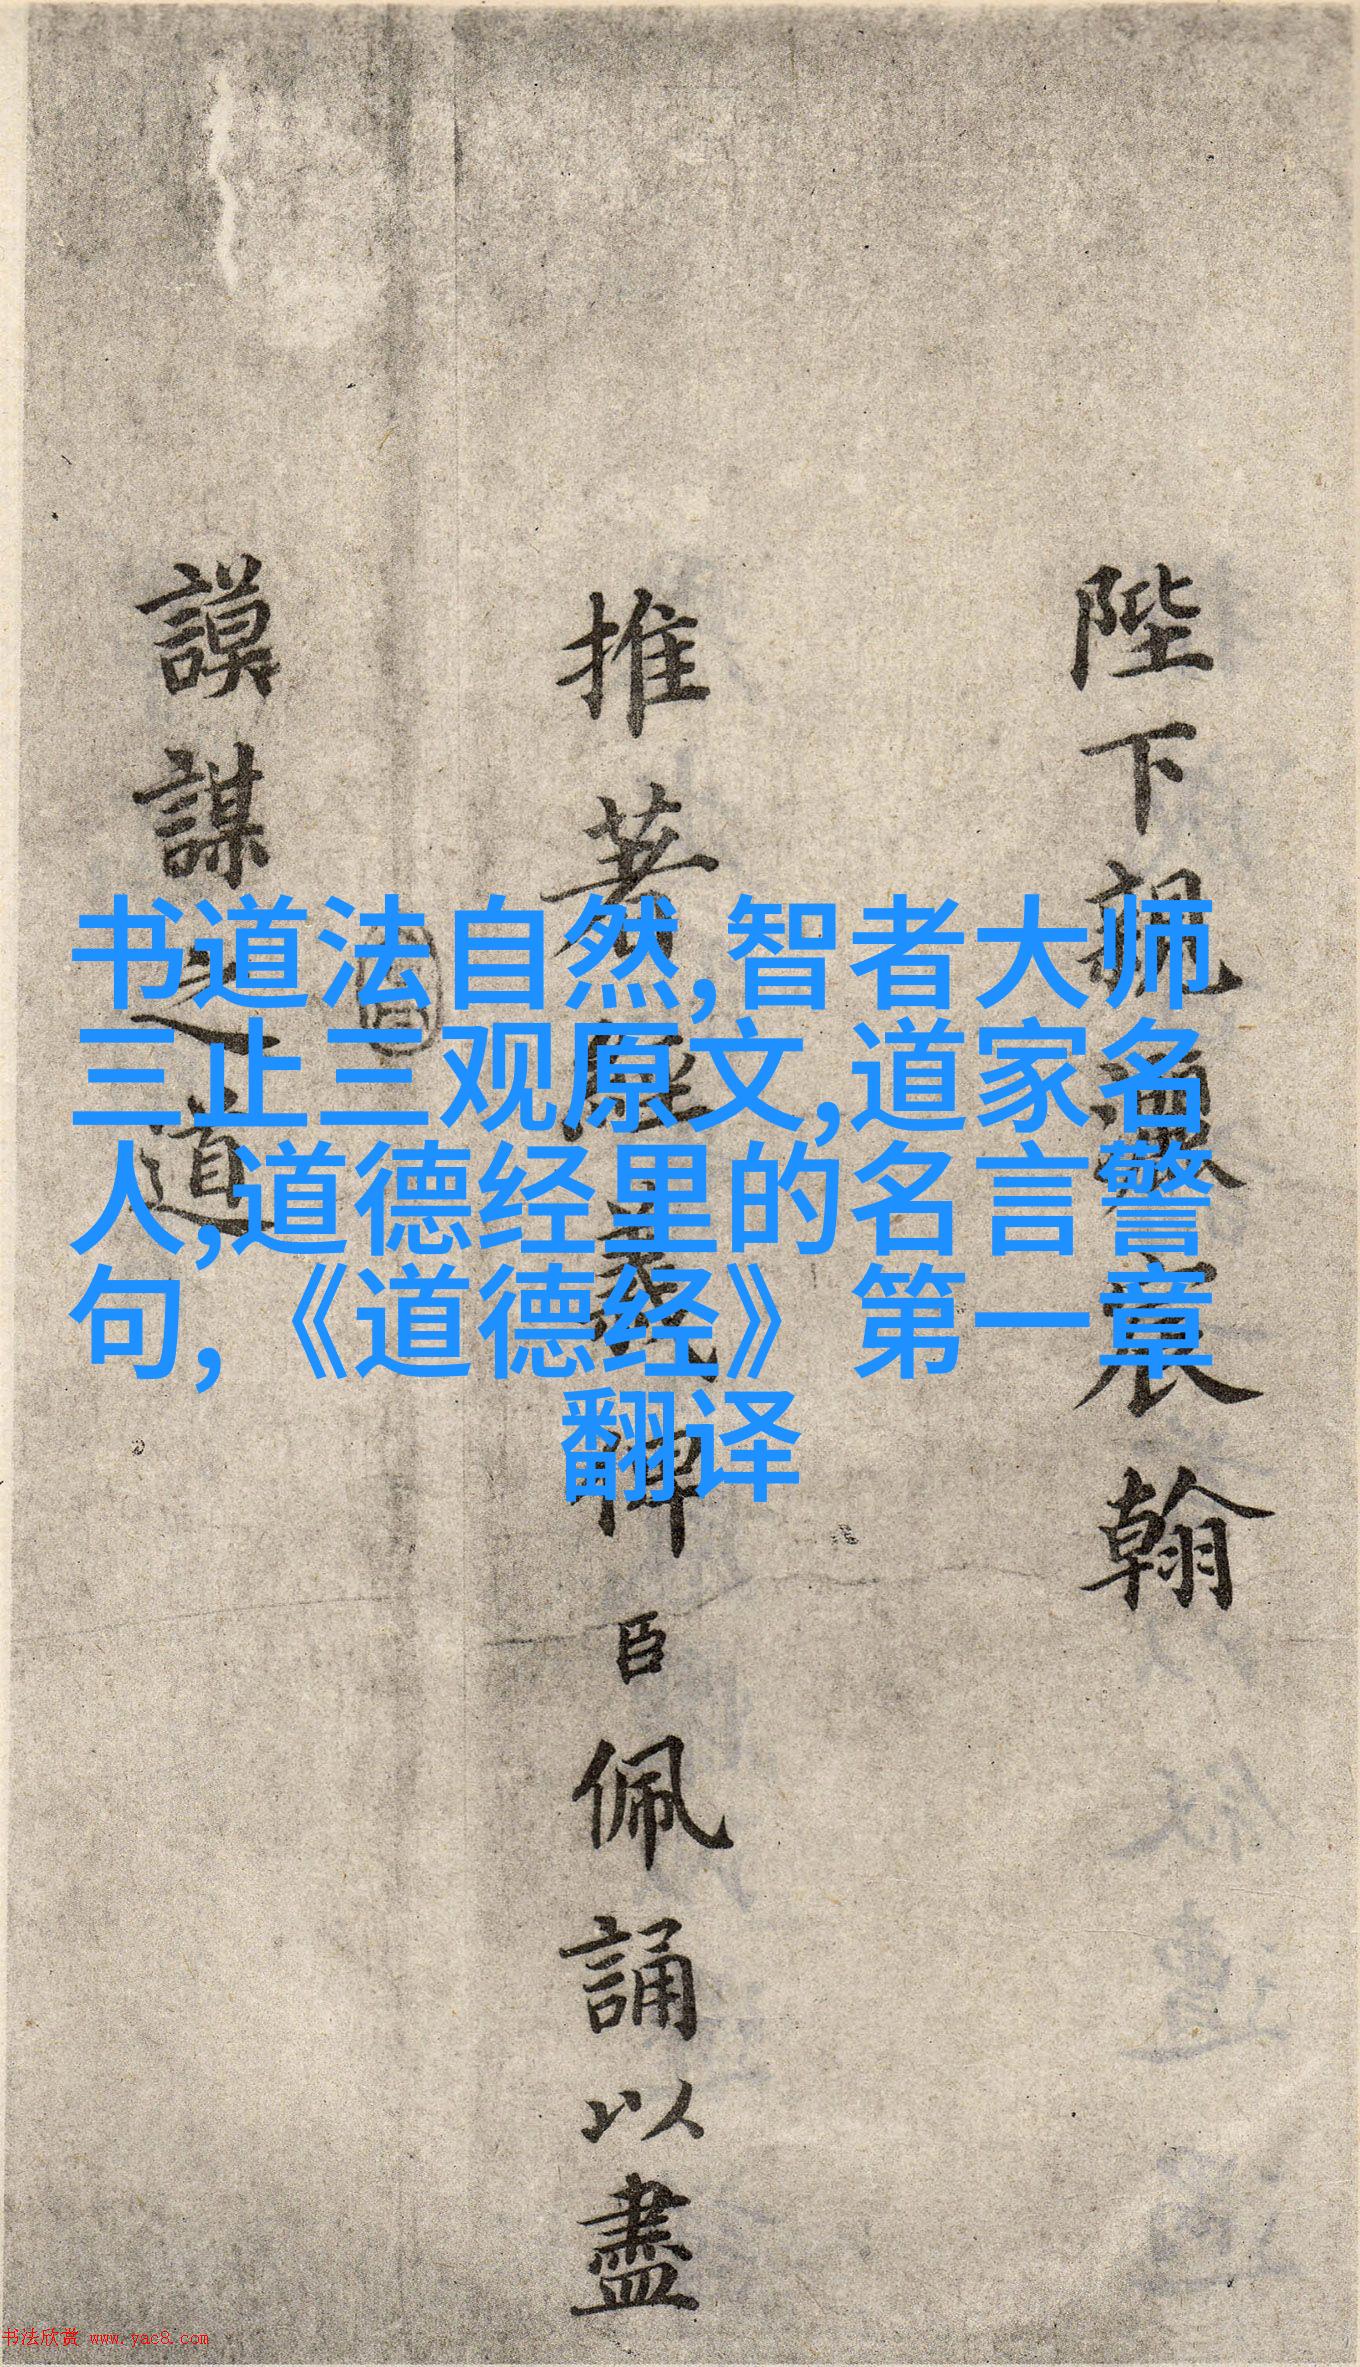 陛下親灑宸翰
推著經義俾臣佩誦以盡
謨謀之道
书道法自然,智者大师
三止三观原文,道家名
人,道德经里的名言警
句,《道德经》第一章
翻译
书法欣赏 www.yac8.com